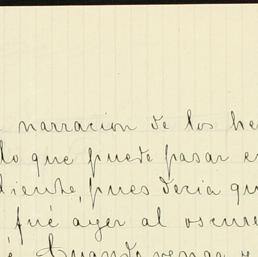 narracion de los he
do que puede pasar e
diente, pues decia qu
fué ayer al oscure
Cuando venga